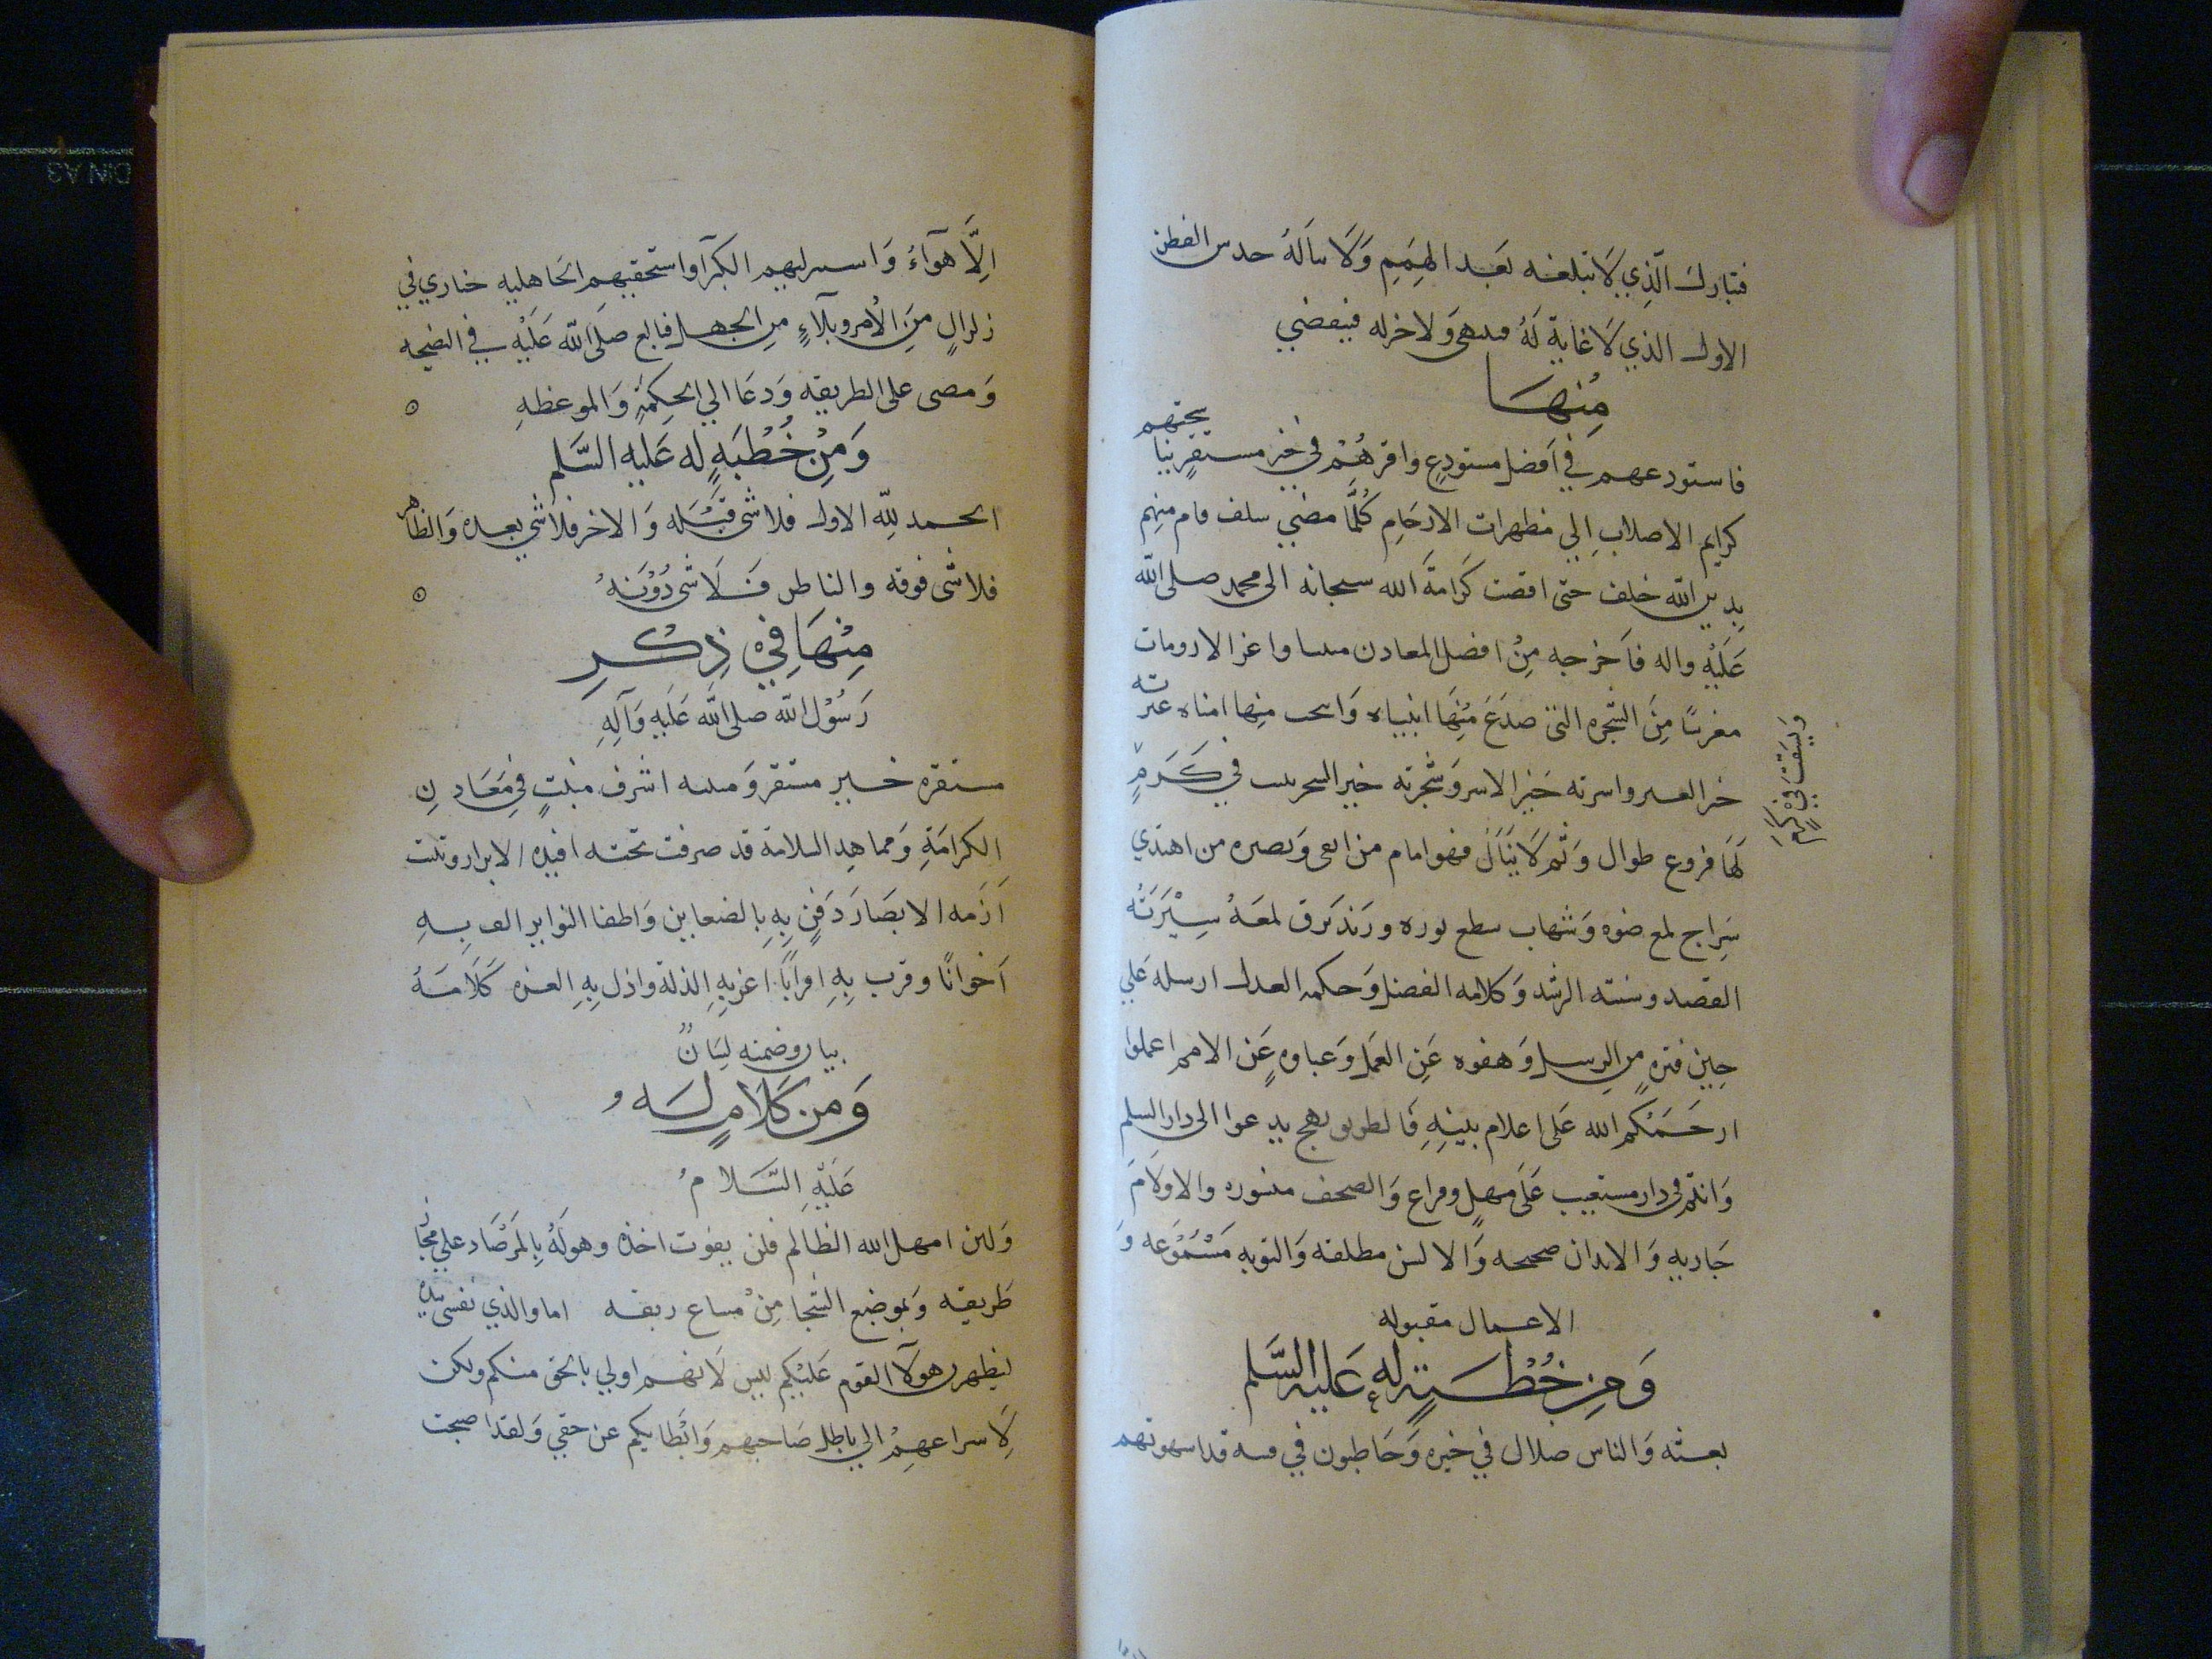 فتبارك الَّذِي لَا تبلغه بَعد الهِمَمِ وَلَا ىنالهُ حدس الفطن
الاول الذي لَا غايةَ لَهُ فىنتهى وَلا اخر له فينقضي
مِنهَا
فاستودعهم في اَفضل مستودعٍ واقرهُمْ في خير مستقرٍ تناسختهم
كرايم الاصلابِ الي مطهرات الارحَامِ كُلَّمَا مضي سلف قام منهم
بدين الله خلف حتى افضت كَرَامَةُ الله سبحانه الى محمد صلى الله
عَلَيْهِ واله فاَخرجه مِنْ افضل المعادن منبتا واعز الارومات
مغرسًا مِنَ الشجره التي صدَعَ مِنهَا انبياه وَانتجب منها امناه عترته
خير العتر واسرته خَير الاسر وَشجرته خير الشجر نبتت في كَرَمٍ
وَبَسَقَتْ فِي
لَهَا فروع طوال وَثمر لَا يُنَالُ فهو امام من اتقى وَبصيره من اهتدي
سِرَاج لمع ضوه وَشهاب سطع نوره وزَند برق لمعَهُ سِيْرَتُهُ
القصد وسنته الرشد وَكلامه الفصل وَحكمه العدل ارسله عَلي
حِين فتره من الرسل وَهفوه عَنِ العَمَل وَغباوهٍ عَن الامم اعملوا
رحَمَكُم الله عَلى اعلام بينهِ فَالطريق نهج يدعوا الى دار السلم
وَانتم في دار مستعتب عَلَى مهلٍ وفراغ وَالصحف منشوره والاقلَام
جَاريه وَالابدان صحيحه وَالالسن مطلقه وَالتوبه مَسْمُوْعه وَ
الاعمال مقبوله
وَمِنْ خُطْبَةٍ لهُ عَليه السَّلم
بعثه وَالناس ضلال في حيره وَحَاطبون في فتنه قد استهوتهم
الِاَّهوآءُ وَاستزلتهم الكبرآ واستخفتهم الجَاهليه حيارى في
زلزالٍ مِنَ الاَمر وبلآءٍ مِن الجهل فبالغ صلى الله عَلَيْهِ في النصيحه
وَمضى على الطريقه وَدعَا الي الحِكمَةِ وَالموعظهِ
وَمِنْ خُطْبَةٍ له عَليه السَّلم
الحمد لله الاول فلا شي قَبْلَه وَالاخر فلا شي بعده وَالظاهر
فلا شى فوقه والباطن فَلَا شى دُوْنَهُ
مِنْهَا فِي ذِكْرِ
رَسُوْل الله صلى الله عَلَيهِ وَآلِهِ
مستقره خير مستقر وَمنبته اشرف منبتٍ في مَعَادِنِ
الكرامَةِ وَمماهدِ السلامة قد صرفت نحوه افيده الابرار وثنيت
اَزِمه الابصَار دَفَن بِهِ الضغاين وَاطفا النواير الف بِهِ
اَخوانًا وفرق بِهِ اقرانًا اعز بهِ الذلة واذل بِهِ العزه كَلَامَهُ
بيان وصمته لِسَانٌ
وَمن كَلَامٍ لَهُ
عَلَيْهِ السَّلَامُ
وَلين امهل الله الظالم فلن يفوت اخذه وهو لَهُ بِالمرْصَاد علي مجَاز
طَريقه وَبموضع الشجا مِنْ مساغ ريقه اما والذي نفسى بيده
ليظهرن هولآ القوم عَلَيْكم ليس لَانهم اولي بالحق منكم ولكن
لِاسراعهِمْ الي باطل صَاحبهم وَابْطَايكم عن حقي وَلقد اصبحت